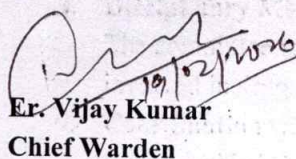 19/02/2026
Er. Vijay Kumar
Chief Warden